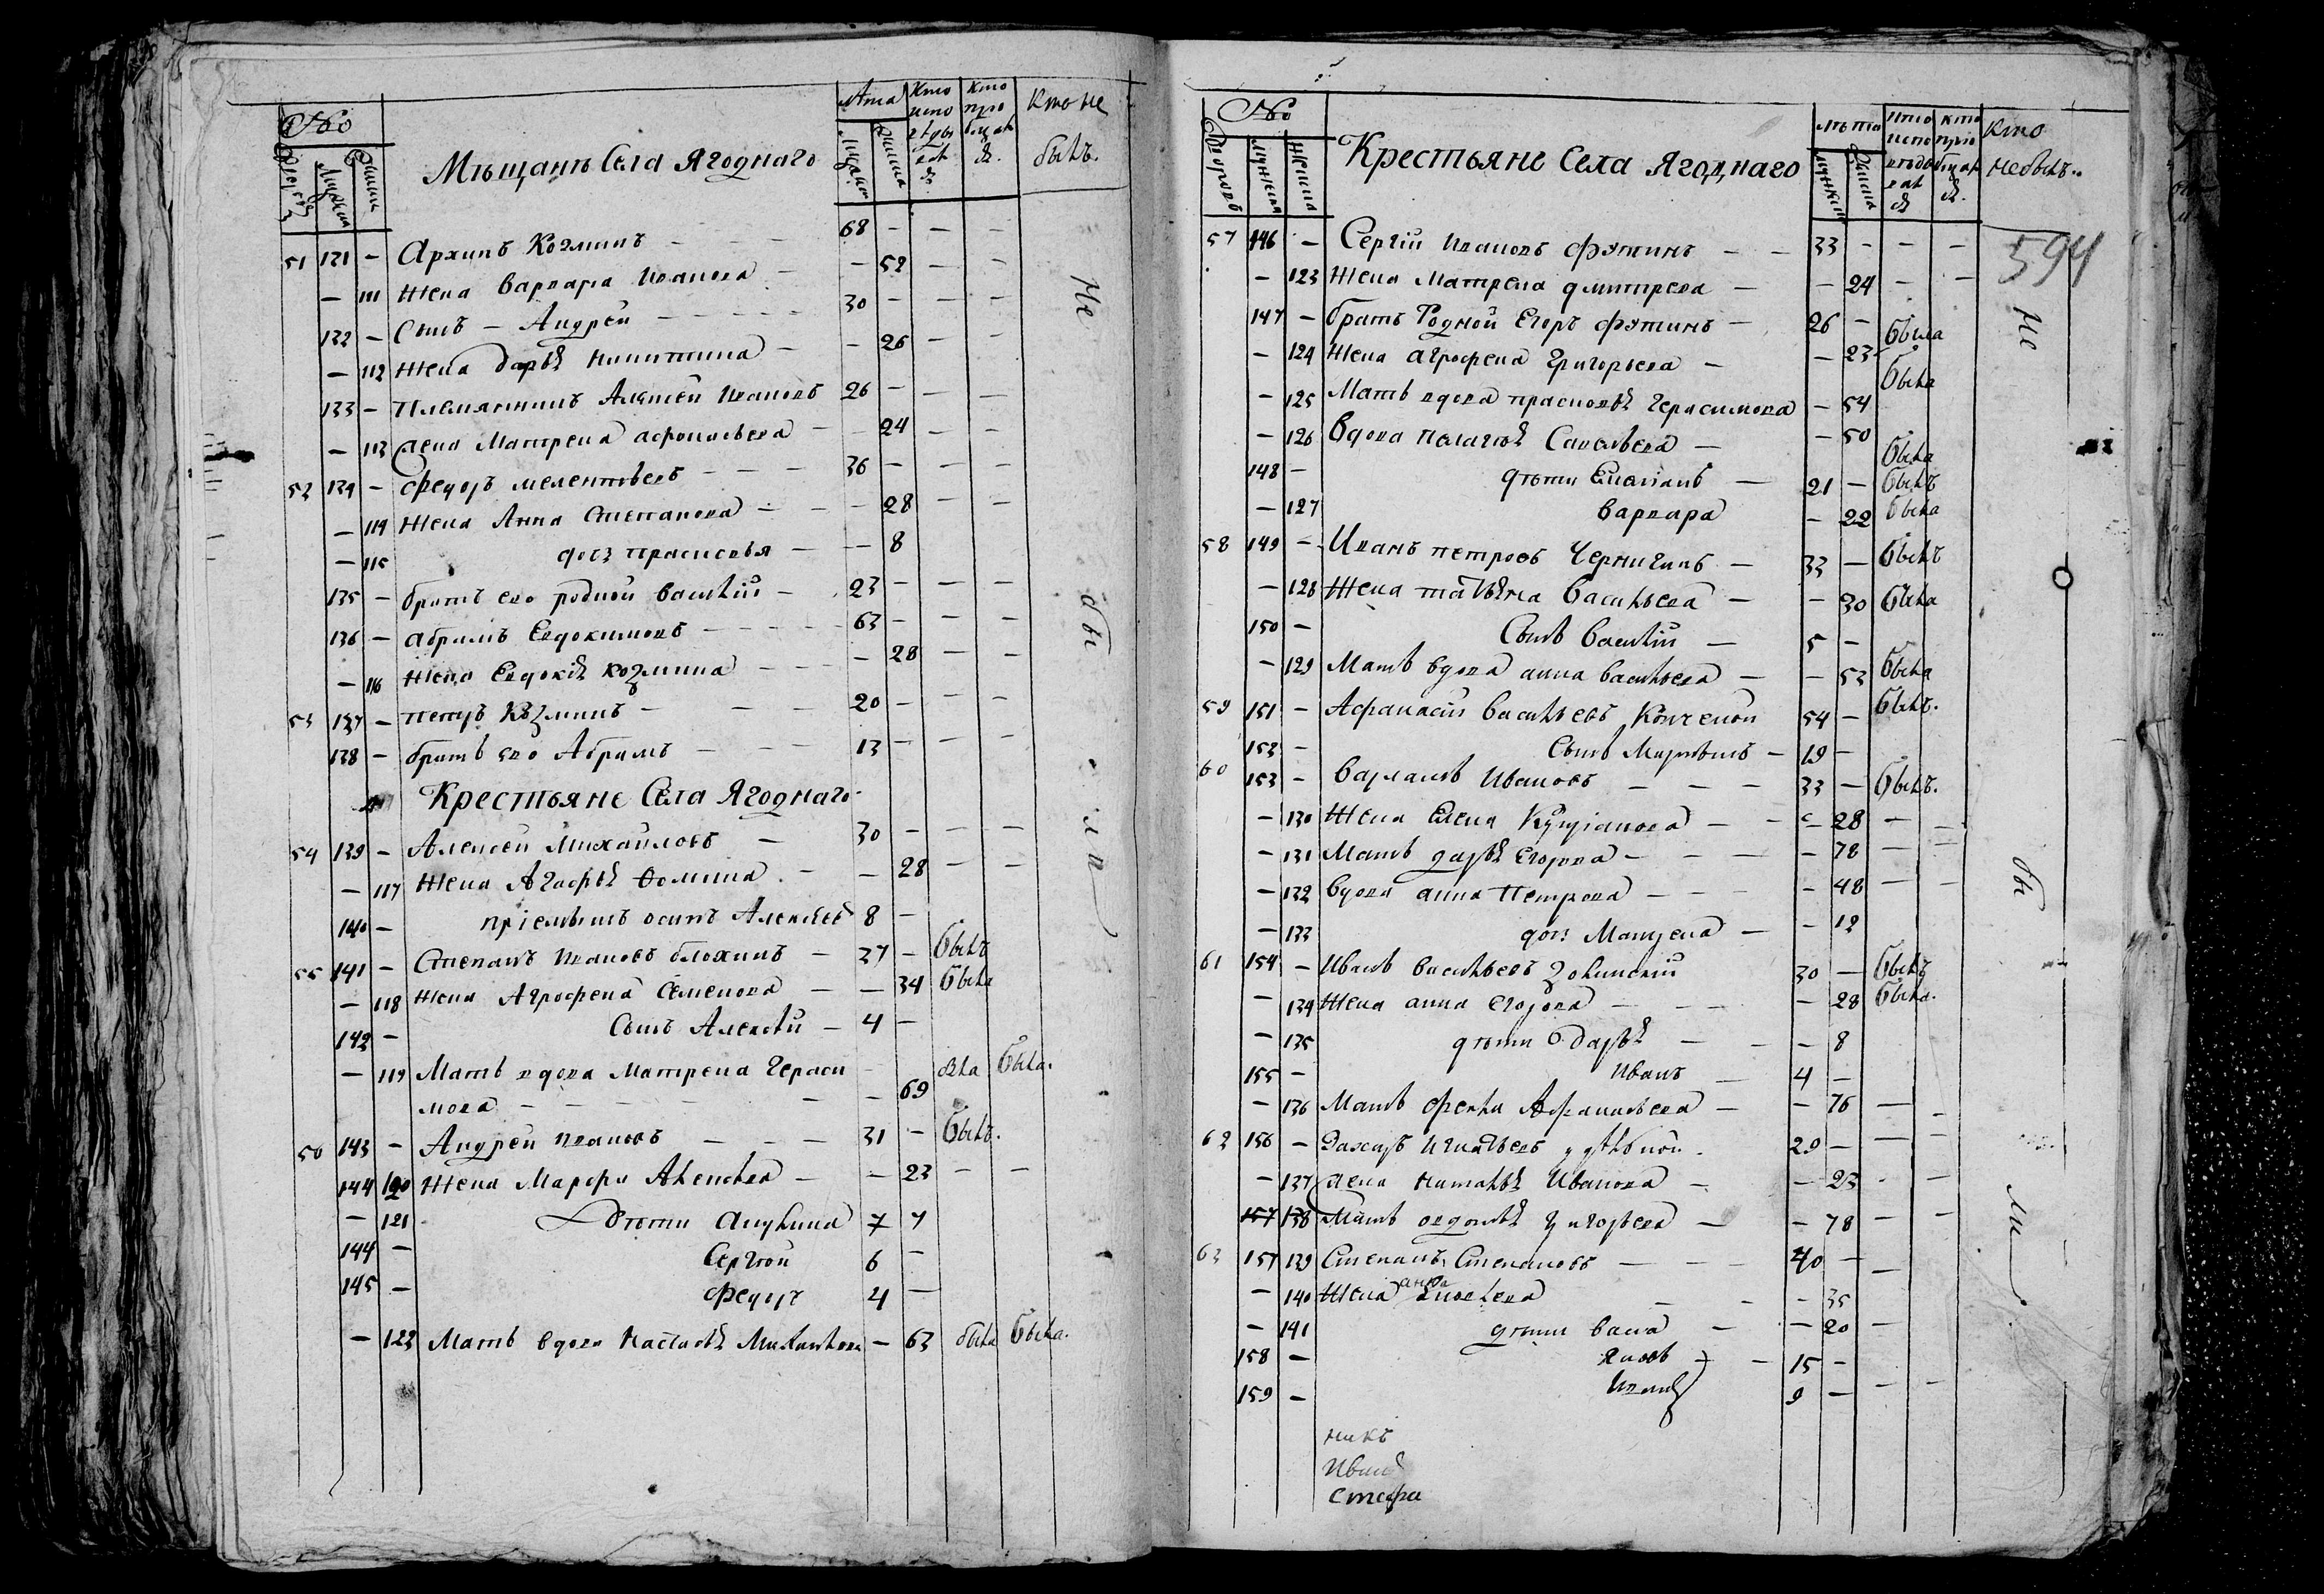 №
Дворовъ Мужска Женска
Мѣщанъ Села Ягоднаго
Лѣта
Мужск Женска
Кто испо вѣдов ался
Кто прио бщалъ ся.
Кто не былъ.
51 131 — Архипъ Козминъ — — — 68 — — —
— 111 Жена варвара Иванова — — 52 — —
132 — Сынъ — Андрей — — — — 30 — — —
— 112 Жена дарья никитина — — 26 — —
133 — племянникъ Алексей Ивановъ 26 — — —
— 113 Жена Матрена афонасьева — — 24 — —
52 134 — Федоръ мелентьевъ — — — 36 — — —
— 114 Жена Анна Степанова — — — 28 — —
— 115 дочь прасковья — — 8
135 — братъ его родной василий — 23 — — —
136 — абрамъ Евдокимовъ — — — — 63 — — —
— 116 Жена Евдокия козмина — — — — 28 — —
53 137 — петръ Козминъ — — — 20 — — —
138 — братъ его Абрамъ — — — 13 — — —
Крестьяне Села Ягоднаго
54 139 — Алексей Михайловъ — 30 — — —
— 117 Жена Агафья Фомина — — 28 — —
140 — приемышъ осипъ Алексеевъ 8 —
55 141 — Степанъ Ивановъ блохинъ — 37 — былъ
— 118 Жена Агрофена Семенова — — 34 была
142 — Сынъ Алексей — 4 —
— 119 Мать вдова Матрена Гераси
мова — — — — — — 69 была была.
56 143 — Андрей Ивановъ — — — 31 — былъ.
144 120 Жена Марфа Алексеева — — 23 — —
— 121 дѣти Акулина 7 7
144 — Сергѣй 6 —
145 — Федоръ 4 —
— 122 Мать вдова Настасья Михайлова — 63 была была.
Не бы ли
№
Дворовъ Мужска Женска
Крестьяне Села Ягоднаго
лѣта
мужска Женска
Кто испо вѣдов ался
Кто прио бщал ся.
Кто небылъ..
594
57 146 — Сергій Ивановъ Фэтинъ — — 33 — — —
— 123 Жена Матрена дмитрева — — 24 — —
147 — братъ Родной Егоръ Фэтинъ — 26 — была
— 124 Жена агрофена Григорьева — — 23 была
— 125 Мать вдова прасковья Герасимова — 54
— 126 Вдова пелагея Савельева — — 50 была
148 — дѣти — 21 — былъ
— 127 Варвара — 22 была
58 149 — Иванъ петровъ — 33 — былъ
— 128 Жена татьяна васильева — — 30 была
150 — Сынъ василий — 5 —
— 129 Мать вдова анна васильева — — 53 была
59 151 — Афанасій васильевъ 54 — былъ.
152 — Сынъ — 19 —
60 153 — варламъ Ивановъ — — — 33 — былъ.
— 130 Жена Елена — — — 28 —
— 131 Мать дарья Егорова — — — — 78 — —
— 132 вдова анна Петрова — — — — 48 — —
— 133 дочь Матрена — — 12
61 154 — Иванъ васильевъ 30 — былъ
— 134 Жена анна Егорова — — — — 28 была.
— 135 дѣти дарья — — — 8
155 — Иванъ — 4 —
— 136 Мать Фекла Афанасьева — — 76 — —
62 156 — Захаръ Игнатьевъ удѣльной. 29 — — —
— 137 Жена наталья Иванова — — 23 — —
157 138 Мать Григорьева — — 78 — —
63 157 139 Степанъ Степановъ — — — 40 — —
— 140 Жена анна — — — 35
— 141 дѣти васа — — 20 —
158 — Яковъ — — 15 —
159 — Иванъ 9 — — —
Не бы ли
никъ
Иван
стефа